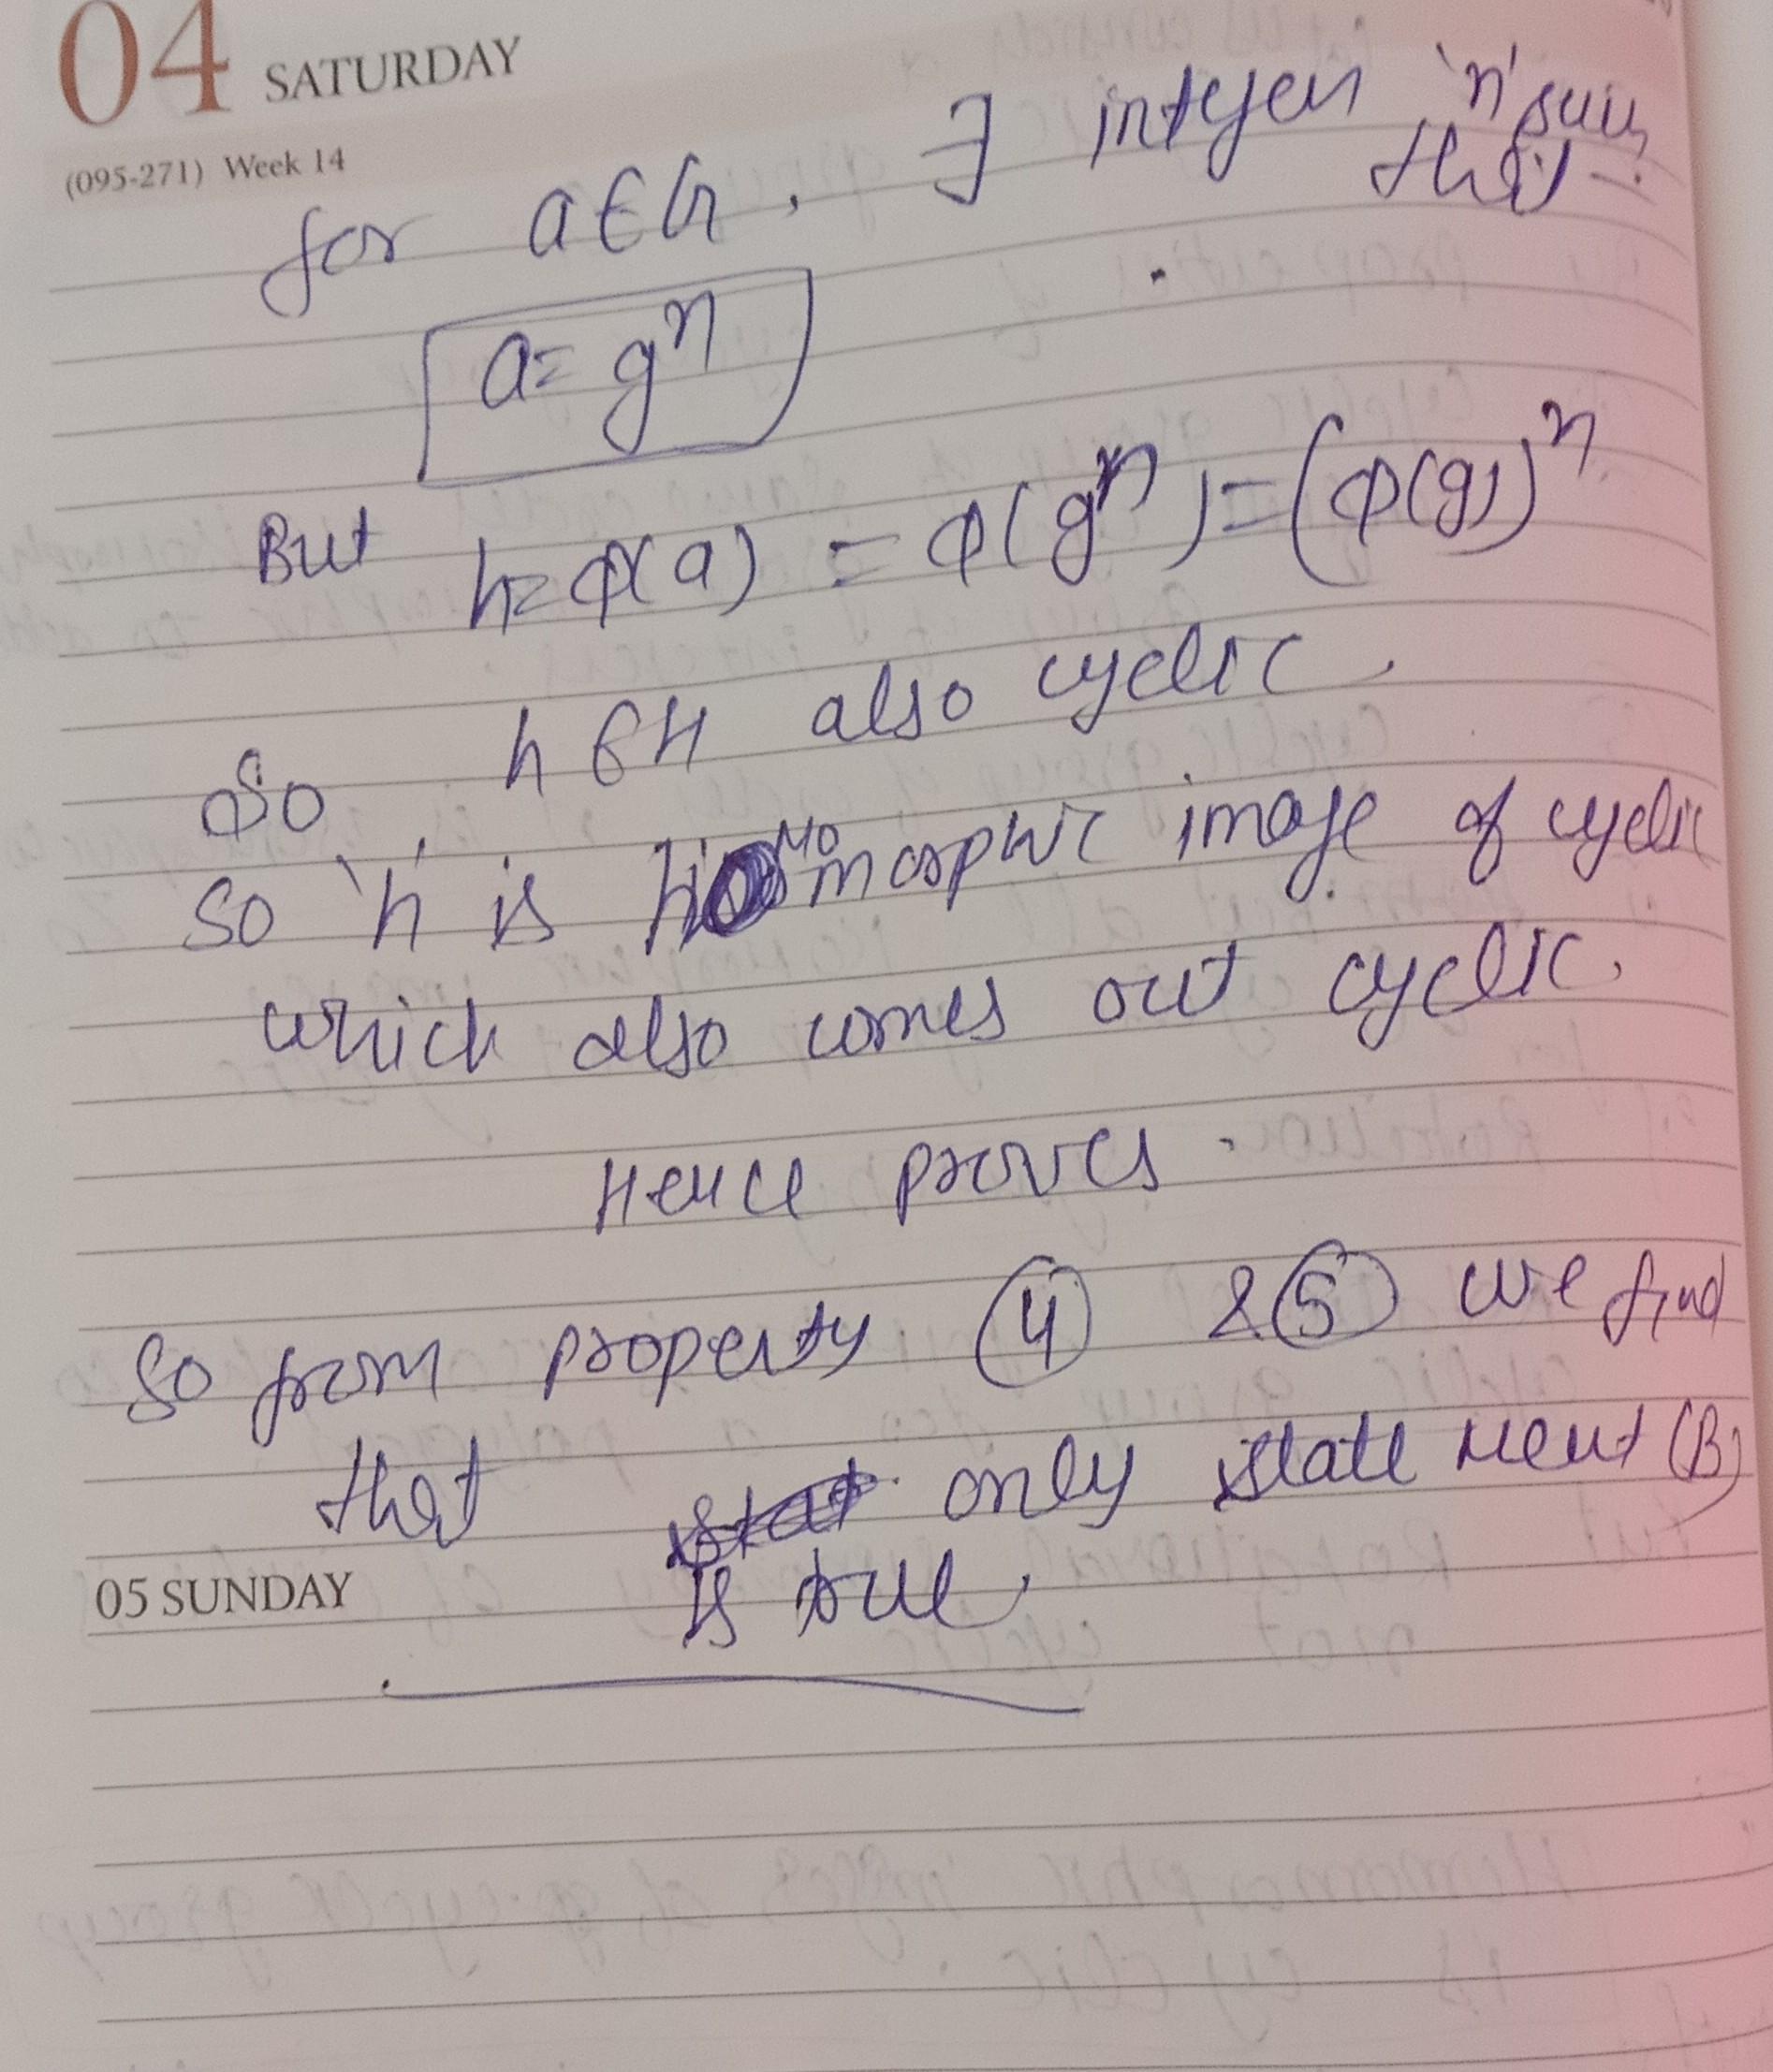 04 SATURDAY
(095-271) Week 14
for a∈G, ∃ integer 'n' such that
a = gⁿ
But h = φ(a) = φ(gⁿ) = (φ(g))ⁿ
So h ∈ H also cyclic.
So 'h' is homomorphic image of cyclic
which also comes out cyclic.
Hence proves.
So from property (4) & (5) we find
that only statement (B)
05 SUNDAY
is true.